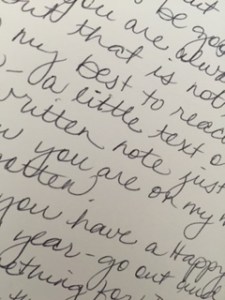 be goo
you are alwa
but that is not
my best to reac
- a little text o
written note just
you are on my m
otten.
you have a Happy
year - go out and
ething for